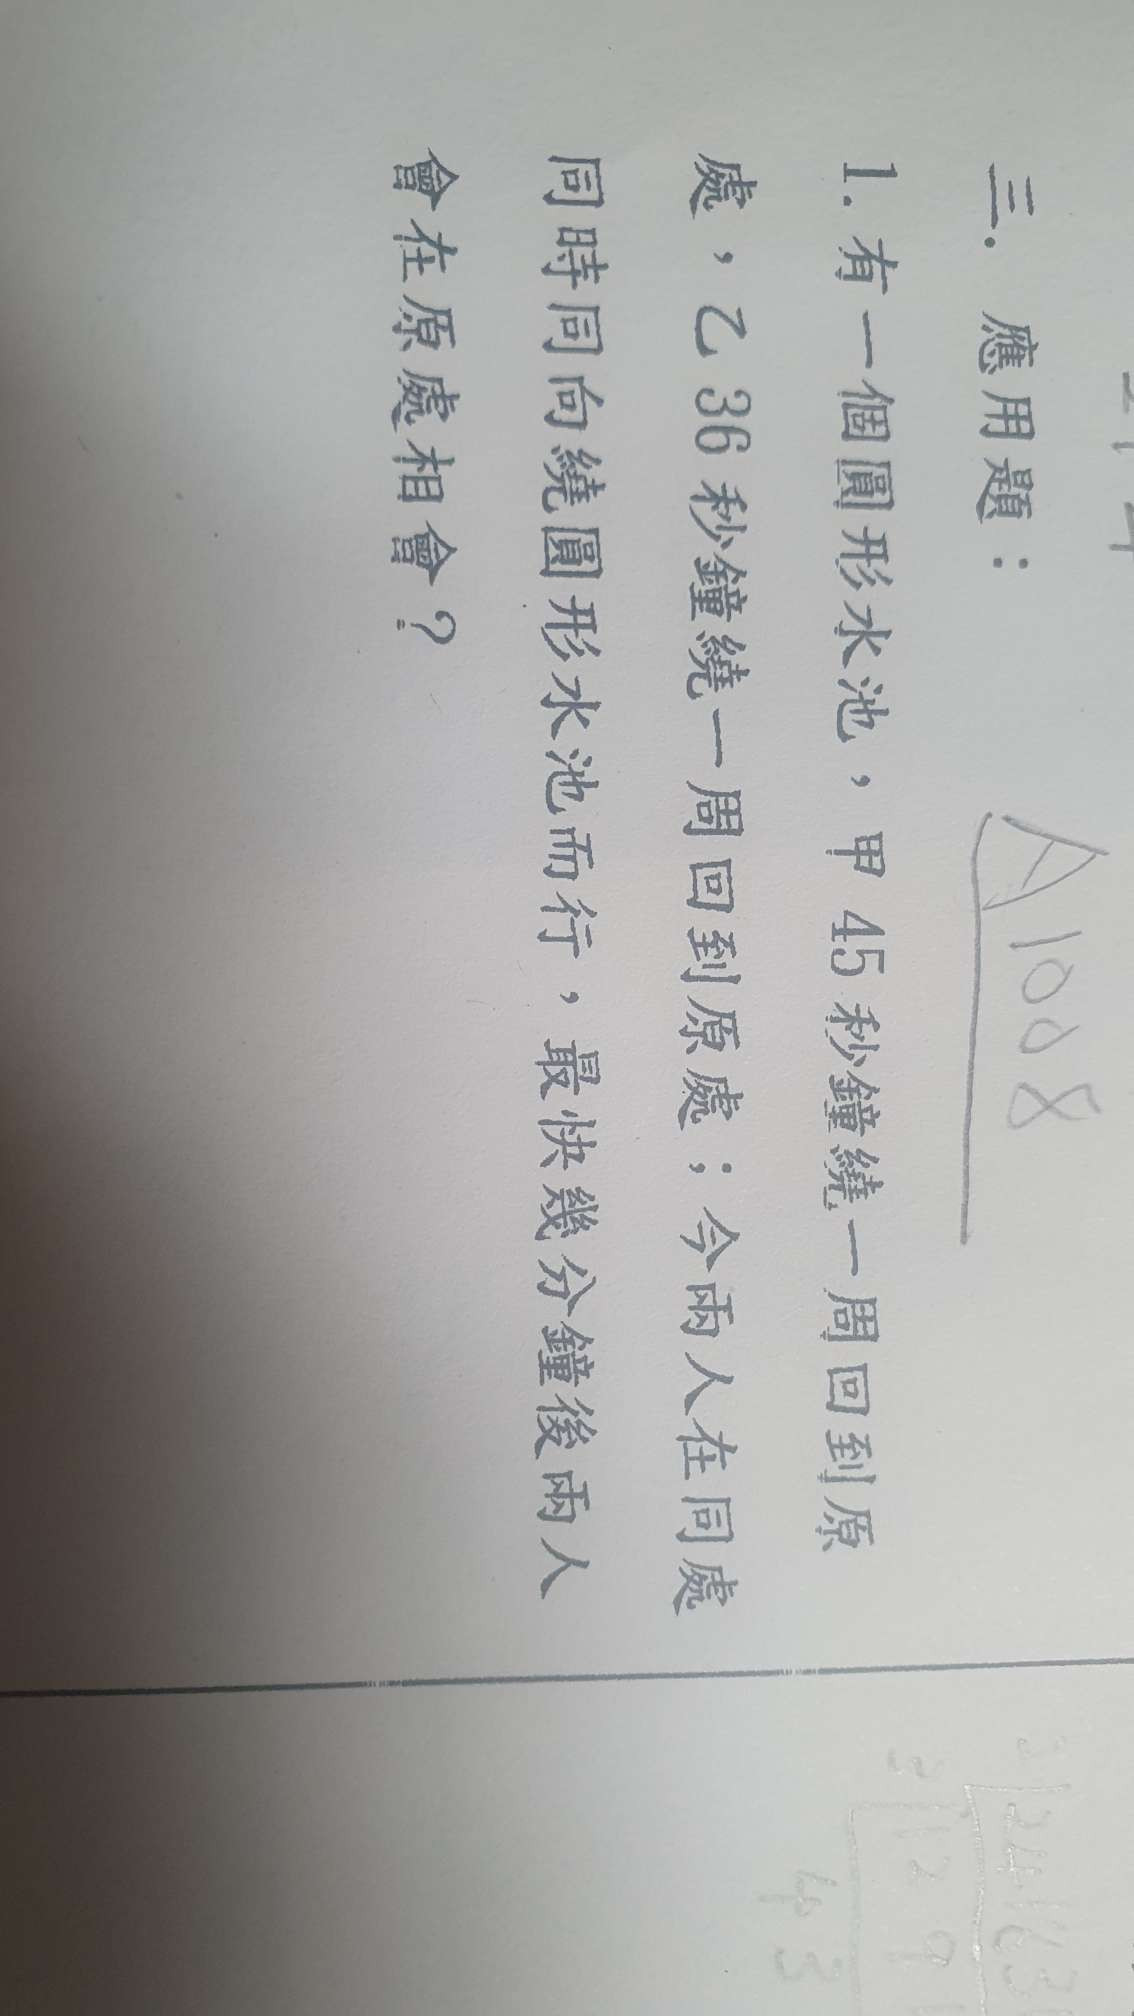 三. 應用題：
A1008
1. 有一個圓形水池，甲 45 秒鐘繞一周回到原
處，乙 36 秒鐘繞一周回到原處；今兩人在同處
同時同向繞圓形水池而行，最快幾分鐘後兩人
會在原處相會？